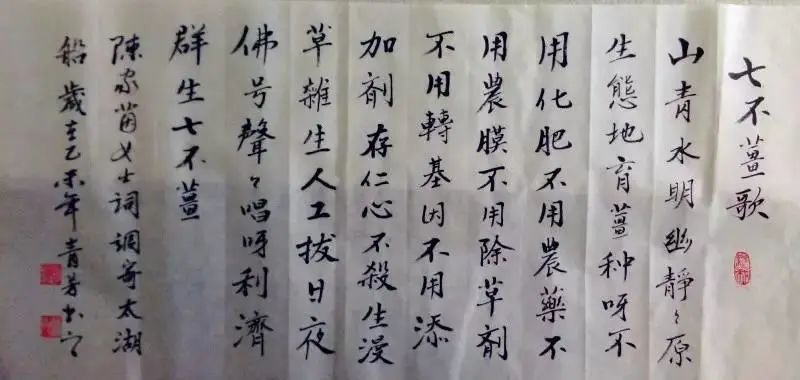 七不薑歌
山青水明幽靜〻原
生態地育薑種呀不
用化肥不用農藥不
用農膜不用除草剤
不用轉基因不用添
加剤存仁心不殺生漫
草雜生人工拔日夜
佛号聲〻唱呀利濟
群生七不薑
陳家茵女士詞調寄太湖
船歲在乙未年青芳書